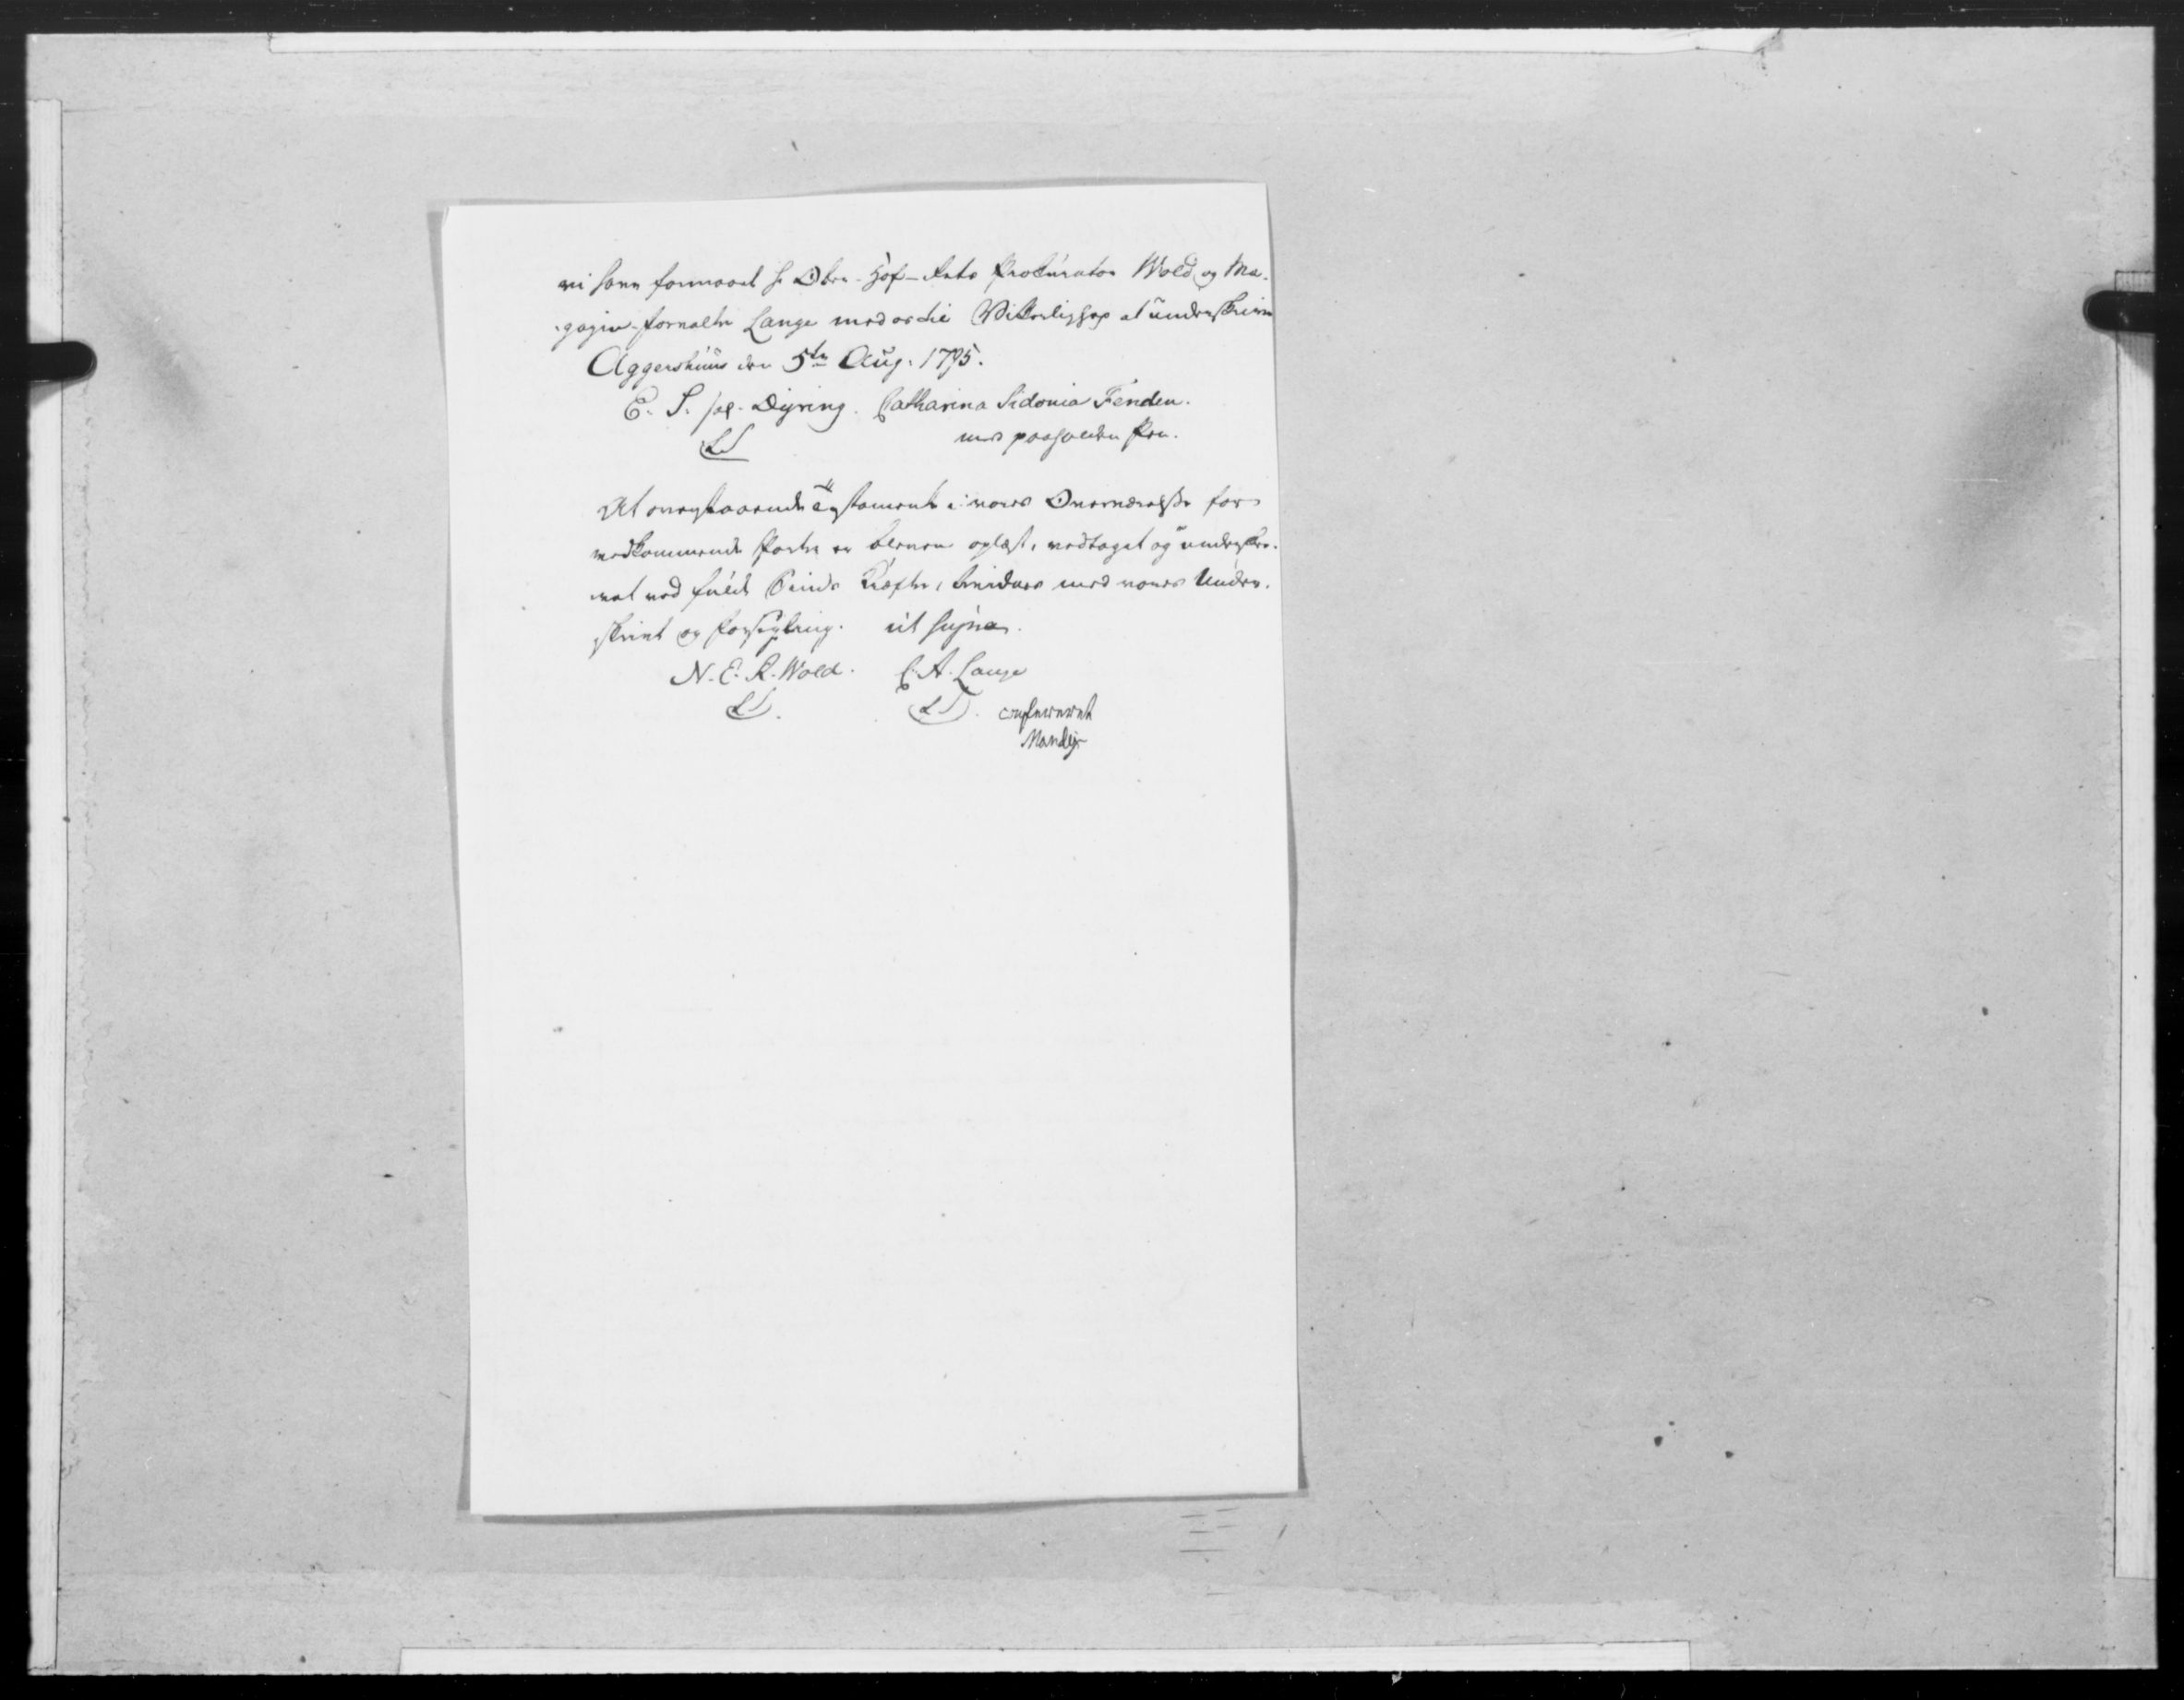 vi have formaaet Hr Ober-Hof-Rets Procurator Wold og Ma-
gazin-forvalter Lange med os til Vitterlighed at underskrive
Aggershuus den 5te Aug. 1795.
E. S. sal. Dyring. Catharina Sidonia Fenden.
LS med paaholden Pen.
At ovenstaaende Testament i vores Overværelse for
vedkommende Parter er bleven oplæst, vedtaget og underskre-
vet ved fulde Sinds Kræfter, bevidnes med vores Under-
skrivt og Forsegling. ut supra.
N. E. R. Wold. C. A. Lange
LS. LS.
Mandix